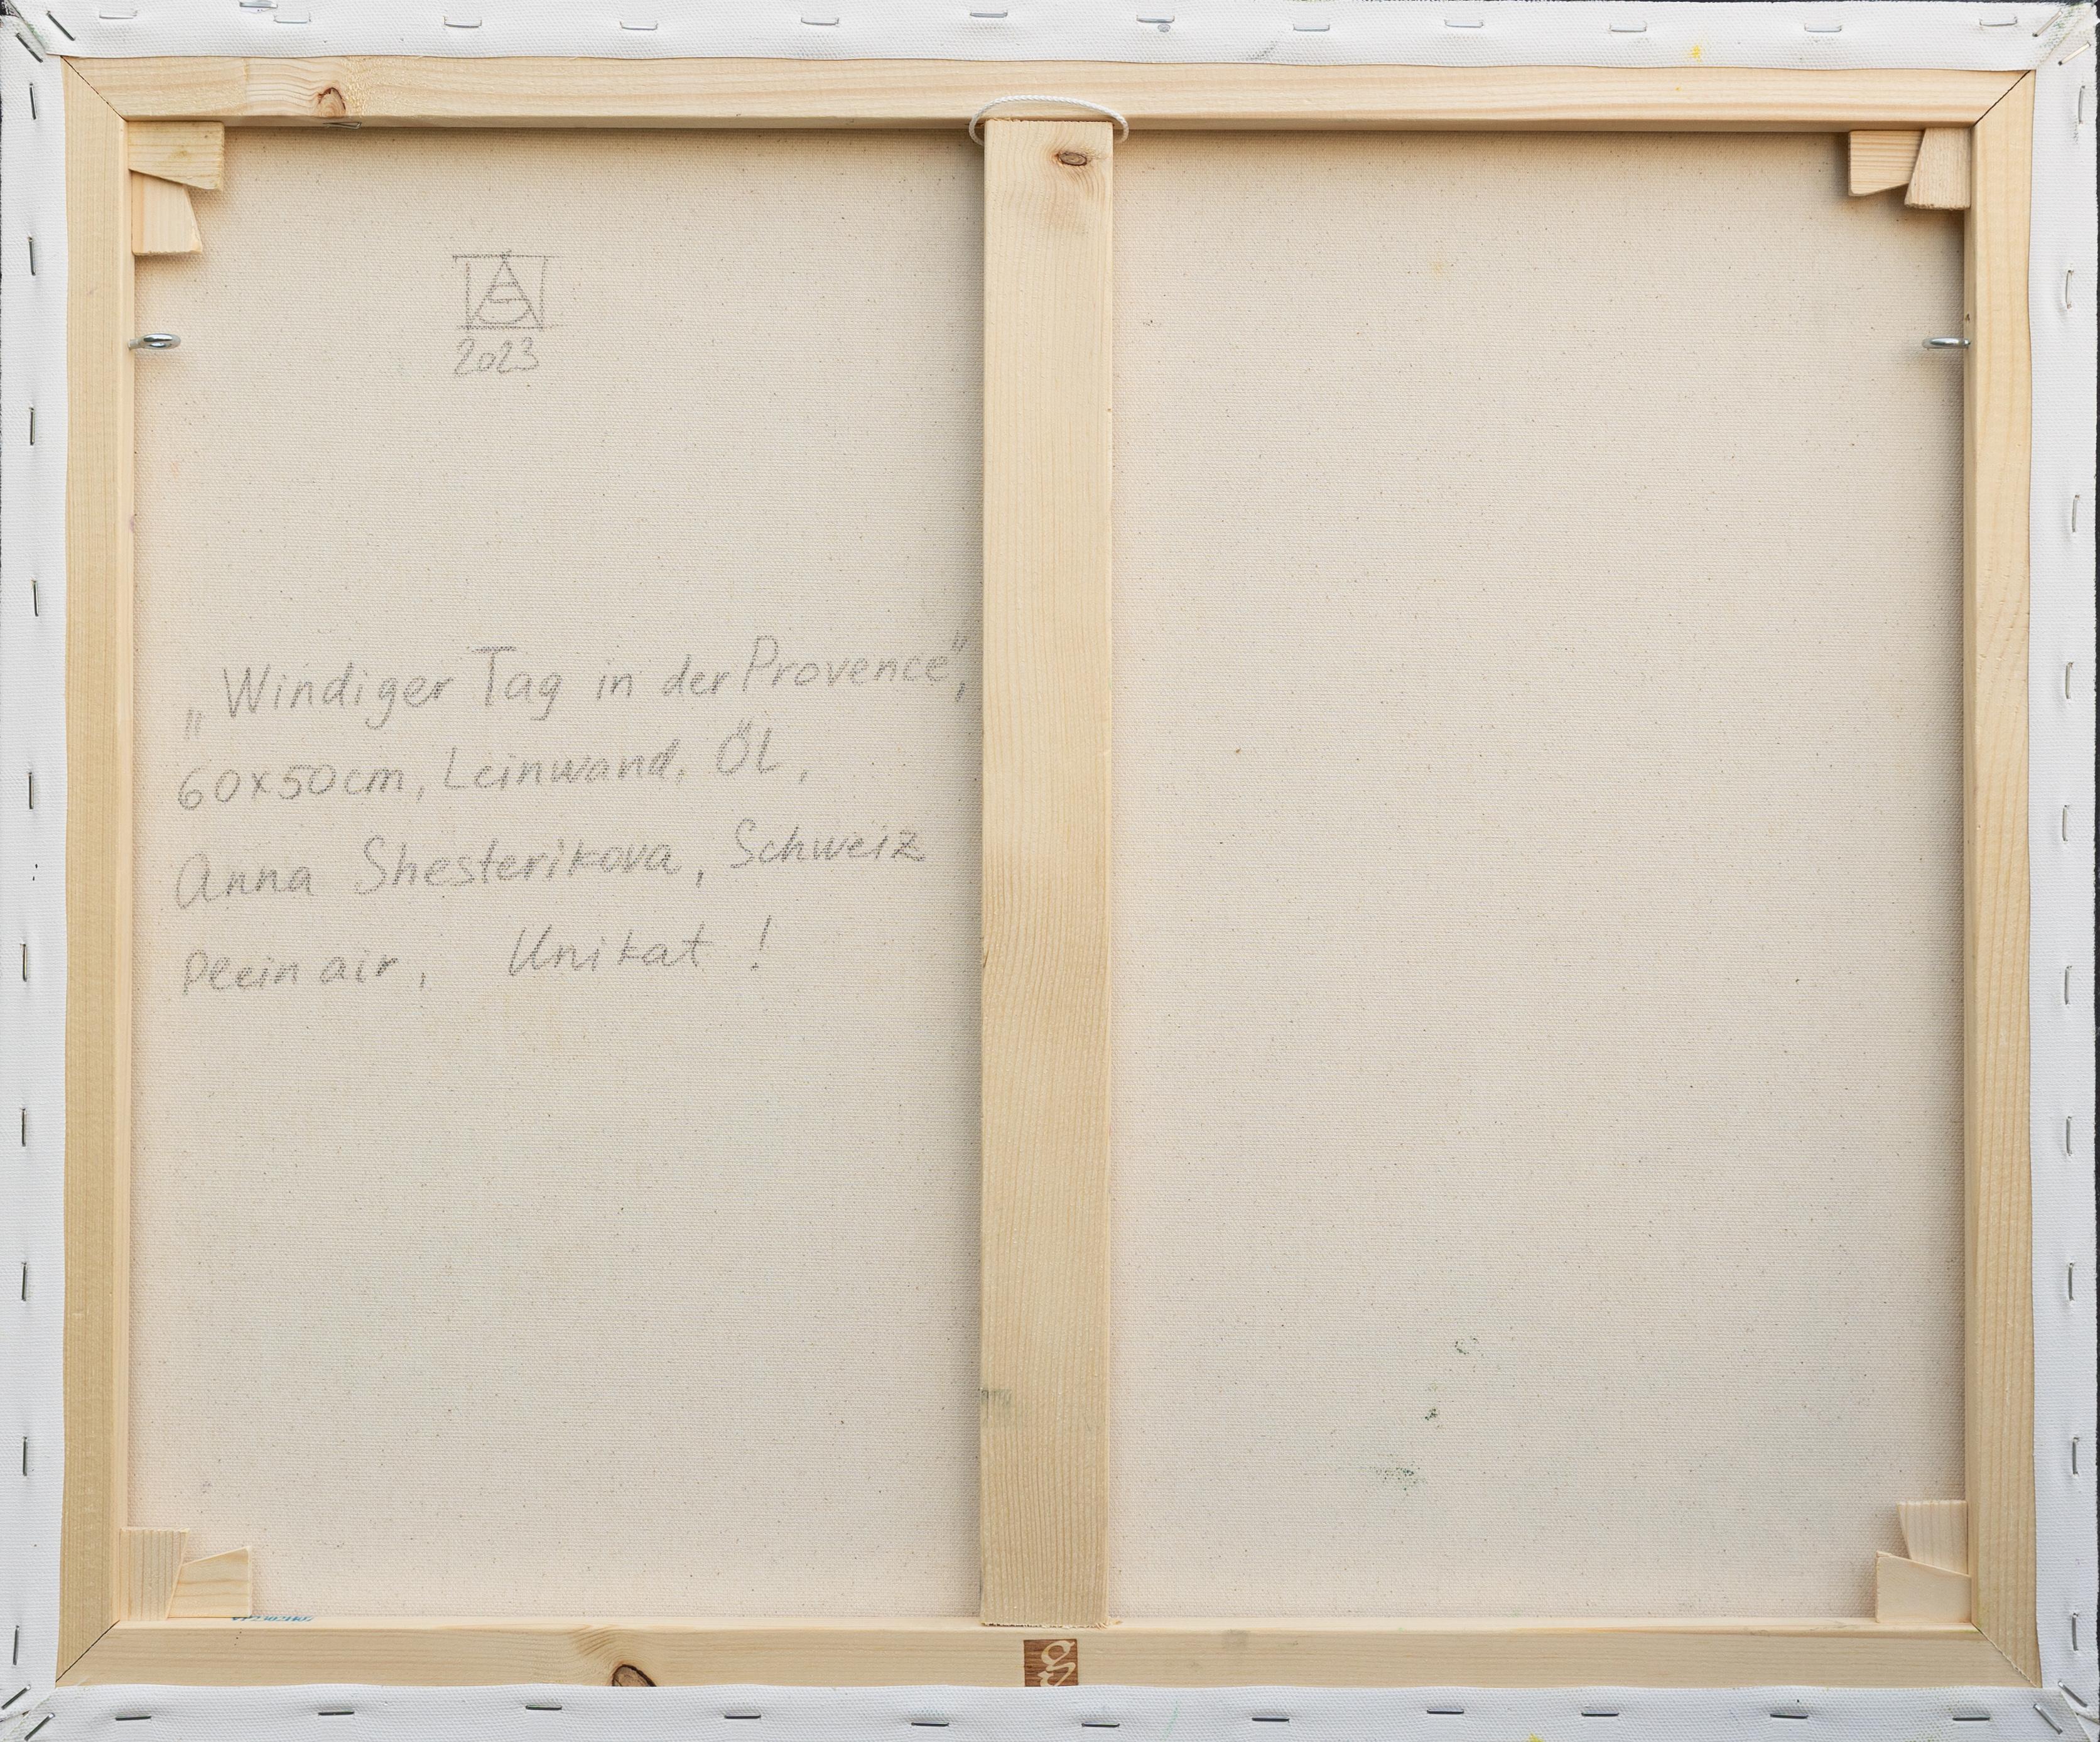 2023
„Windiger Tag in der Provence",
60x50cm, Leinwand, ÖL,
Anna Shesterikova, Schweiz
Pleinair, Unikat !